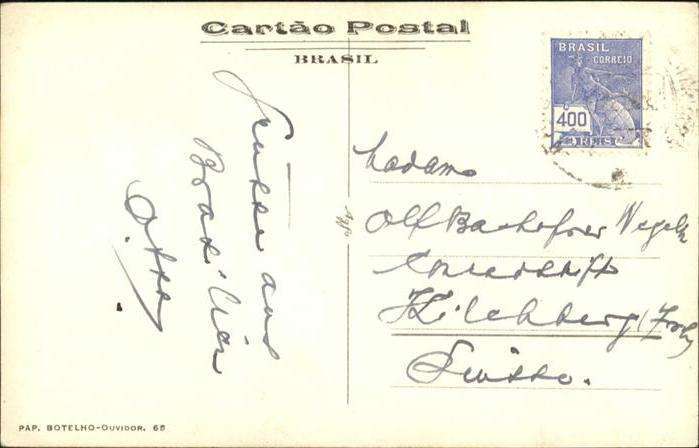 Cartão Postal
BRASIL
BRASIL
CORREIO
400
REIS
Grüsse aus
Brasilien
Madame
Olf Wegelin
Kilchberg
Suisse.
PAP. BOTELHO-OUVIDOR, 65